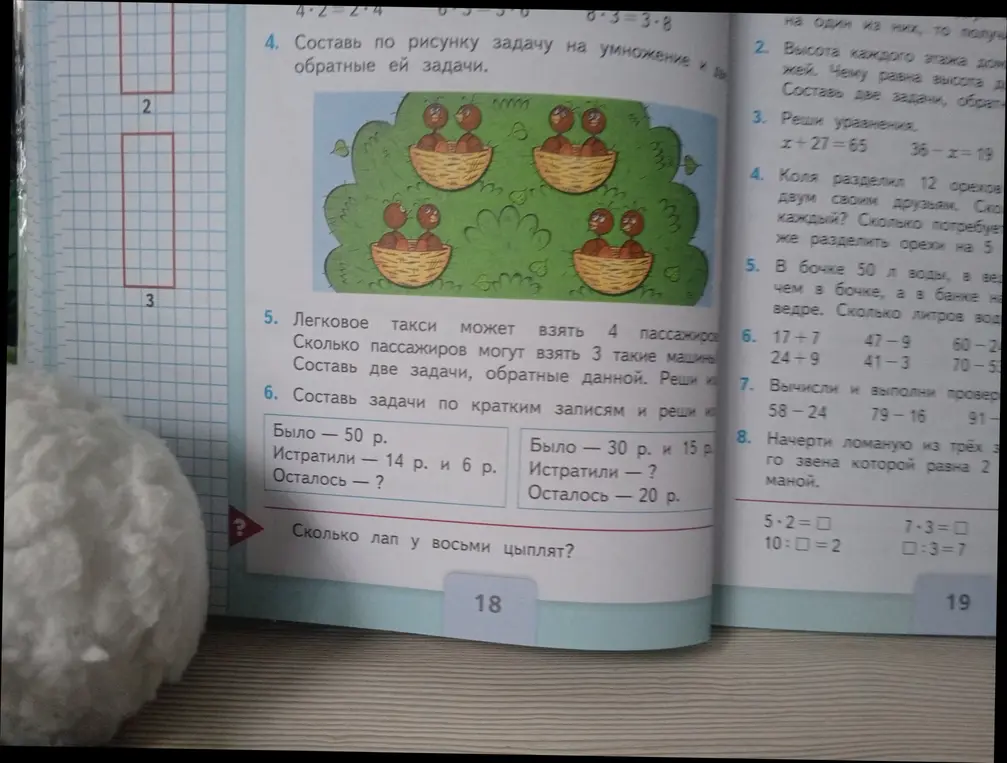 4·2=2·4
8·3=3·8
2
3
4. Составь по рисунку задачу на умножение и
обратные ей задачи.
5. Легковое такси может взять 4 пассажиров
Сколько пассажиров могут взять 3 такие машины
Составь две задачи, обратные данной. Реши
6. Составь задачи по кратким записям и реши
Было — 50 р.
Истратили — 14 р. и 6 р.
Осталось — ?
Было — 30 р. и 15 р
Истратили — ?
Осталось — 20 р.
?
Сколько лап у восьми цыплят?
18
на один из них, то
2. Высота каждого этажа
жей. Чему равна высота
Составь две задачи,
3. Реши уравнения.
x+27=65 36-x=19
4. Коля разделил 12 орехов
двум своим друзьям.
каждый? Сколько
же разделить орехи на 5
5. В бочке 50 л воды, в
чем в бочке, а в банке
ведре. Сколько литров
6. 17+7 47-9 60-2
24+9 41-3 70-5
7. Вычисли и выполни
58-24 79-16 91-
8. Начерти ломаную из трёх
го звена которой равна 2
маной.
5·2=□ 7·3=□
10:□=2 □:3=7
19